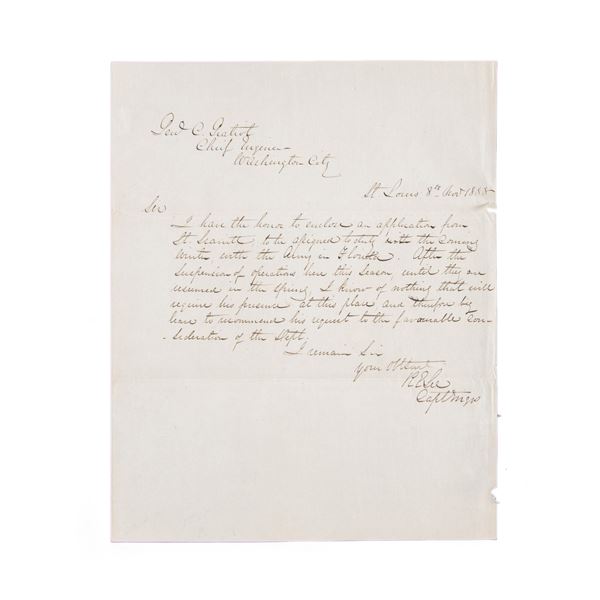 Genl C. Gratiot
Chief Engineer
Washington City
St Louis 8th Novr 1838
Sir
I have the honor to enclose an application from
Lt. to be assigned to duty with the coming
winter with the Army in Florida. After the
suspension of operations here this season, until they are
resumed in the spring, I know of nothing that will
require his presence at this place and therefore beg
leave to recommend his request to the favourable con-
-sideration of the Dept.
I remain Sir
Your Obt Servt
R E Lee
Capt Engrs